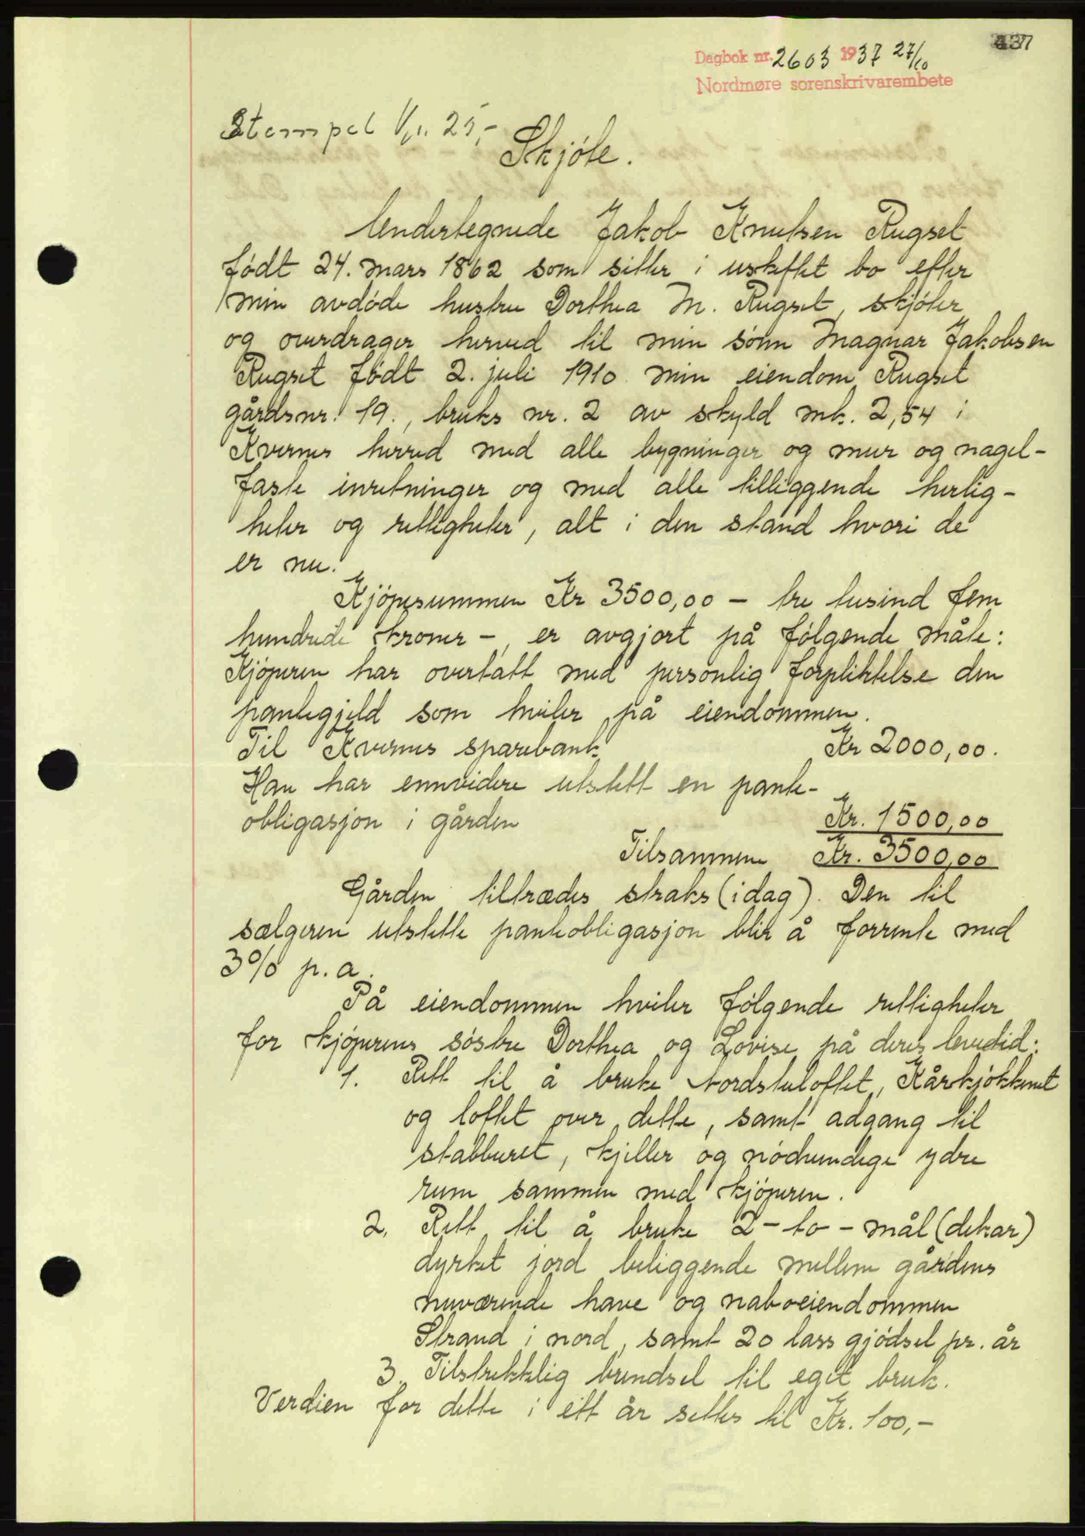 437
Dagbok nr. 2603 1937 27/10
Nordmøre sorenskrivarembete
Stempel Kr. 25,-
Skjöte.
Undertegnede Jakob Knutsen Rugset
født 24. mars 1862 som sitter i uskiftet bo efter
min avdøde hustru Dorthea M. Rugset, skjöter
og overdrager herved til min sönn Magnar Jakobsen
Rugset født 2. juli 1910 min eiendom Rugset
gårdsnr. 19., bruks nr. 2 av skyld mk. 2,54 i
Kvernes herred med alle bygninger og mur og nagel-
faste inretninger og med alle tilliggende herlig-
heter og rettigheter, alt i den stand hvori de
er nu.
Kjöpesummen Kr 3500,00 - tre tusind fem
hundrede kroner -, er avgjort på følgende måte:
Kjöperen har overtatt med personlig forpliktelse den
pantegjeld som hviler på eiendommen.
Til Kvernes sparebank Kr 2000,00.
Han har ennvidere utstett en pante-
obligasjon i gården Kr. 1500,00
Tilsammen Kr. 3500,00
Gården tiltrædes straks (idag). Den til
sælgeren utstette panteobligasjon blir å forrente med
3% p.a.
På eiendommen hviler følgende rettigheter
for kjöperens söstre Dorthea og Lovise på deres levetid:
1. Rett til å bruke Nordstuloftet, Kårkjökkenet
og loftet over dette, samt adgang til
stabburet, kjeller og nödvendige ydre
rum sammen med kjöperen.
2. Rett til å bruke 2 - to - mål (dekar)
dyrket jord beliggende mellem gårdens
nuværende have og naboeiendommen
Strand i nord, samt 20 lass gjödsel pr. år
3. Tilstrekklig brendsel til eget bruk.
Verdien for dette i ett år settes til Kr. 100,-